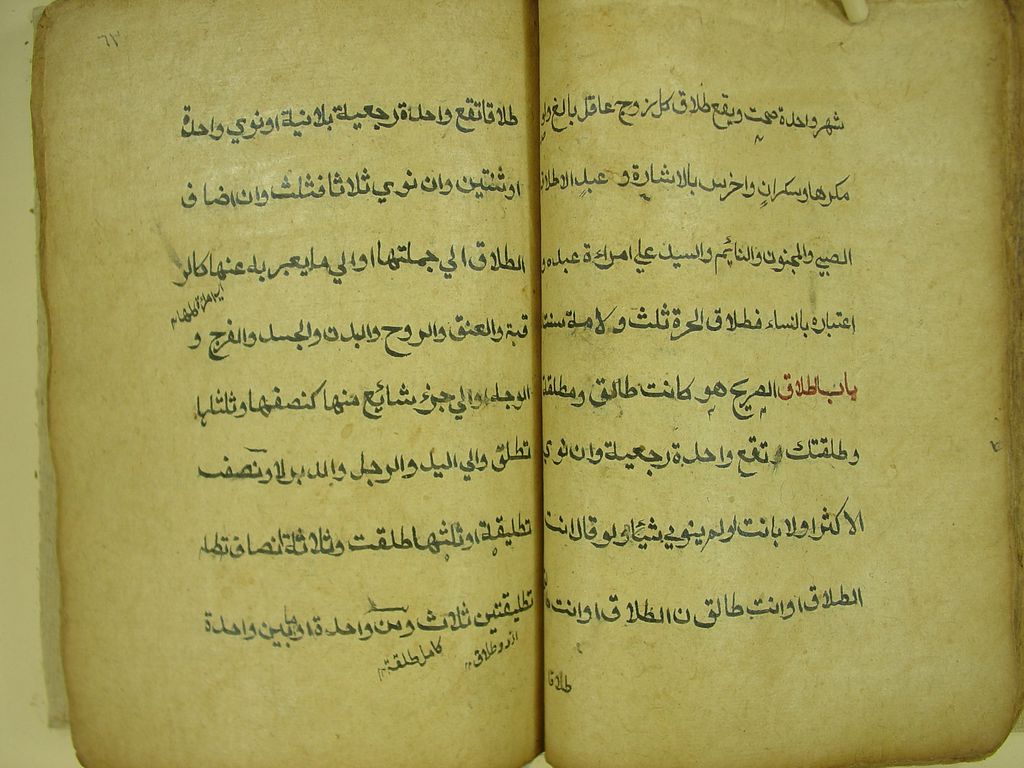 شهر واحدة صحت ويقع طلاق كل زوج عاقل بالغ ولو
مكرها وسكران واخرس بالاشارة و عبد الاطلاق
الصبي والمجنون والنائم والسيد علي امراءة عبده و
اعتباره بالنساء فطلاق الحرة ثلث و لامة
باب طلاق الصريح هو كانت طالق ومطلقة
وطلقتك و تقع واحدة رجعية وان نوي
الاكثر اولابانت لو لم ينوي شيئا ولو قال انت
الطلاق او انت طالق ن الطلاق او انت
طلاقا
٦٣
طلاقا تقع واحدة رجعية بلانية او نوي واحدة
او ثنتين وان نوي ثلاثا فثلث وان اضاف
الطلاق الي جملتها او الي ما يعبر به عنها كالر
قبة والعنق والروح والبدن والجسد والفرج و
الوجه او الي جزء شائع منها كنصفها وثلثها
تطلق والي اليد والرجل والدبر لا ونصف
تطليقة او ثلثها طلقت وثلاثة انصاف
تطليقتين ثلاث ومن واحدة او مابين واحدة
كامل طلقة